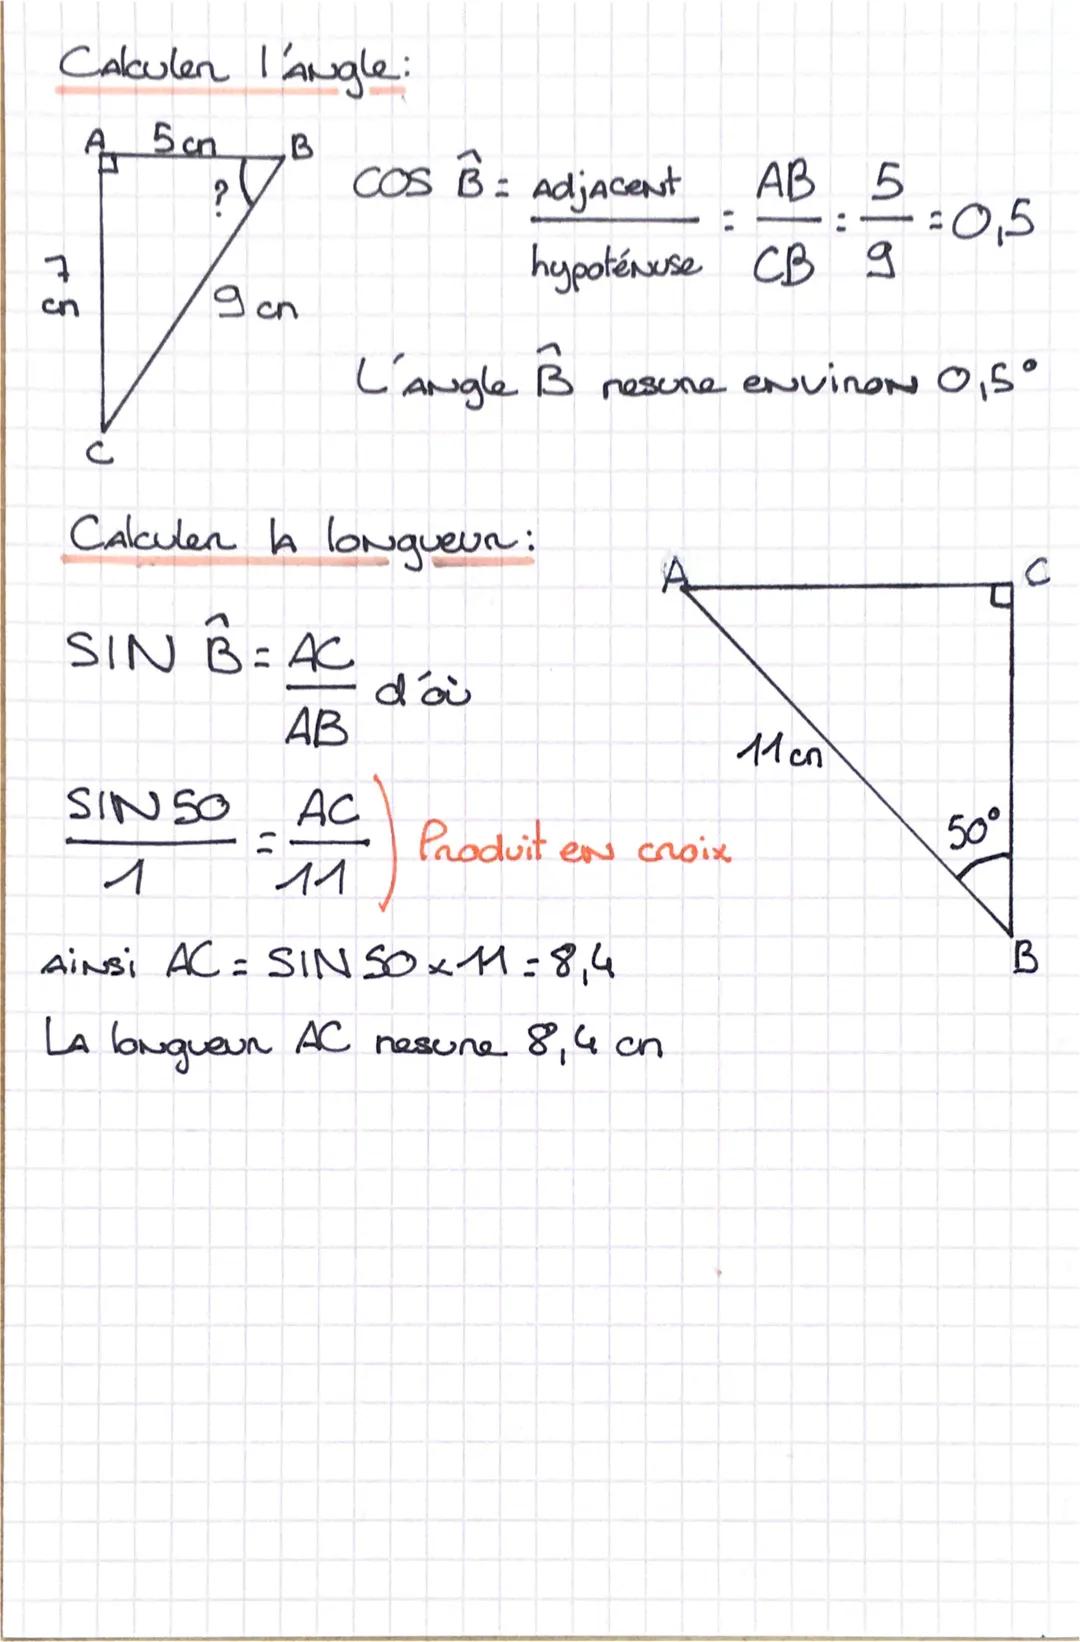 Calculer l'angle:
A 5 cm B
?
7 cm
9 cm
C
COS B̂ = Adjacent / hypoténuse = AB / CB = 5 / 9 = 0,5
L'angle B̂ mesure environ 0,5°
Calculer la longueur:
SIN B̂ = AC / AB d'où
SIN 50 / 1 = AC / 11 Produit en croix
Ainsi AC = SIN 50 x 11 = 8,4
La longueur AC mesure 8,4 cm
A C
11 cm
50°
B